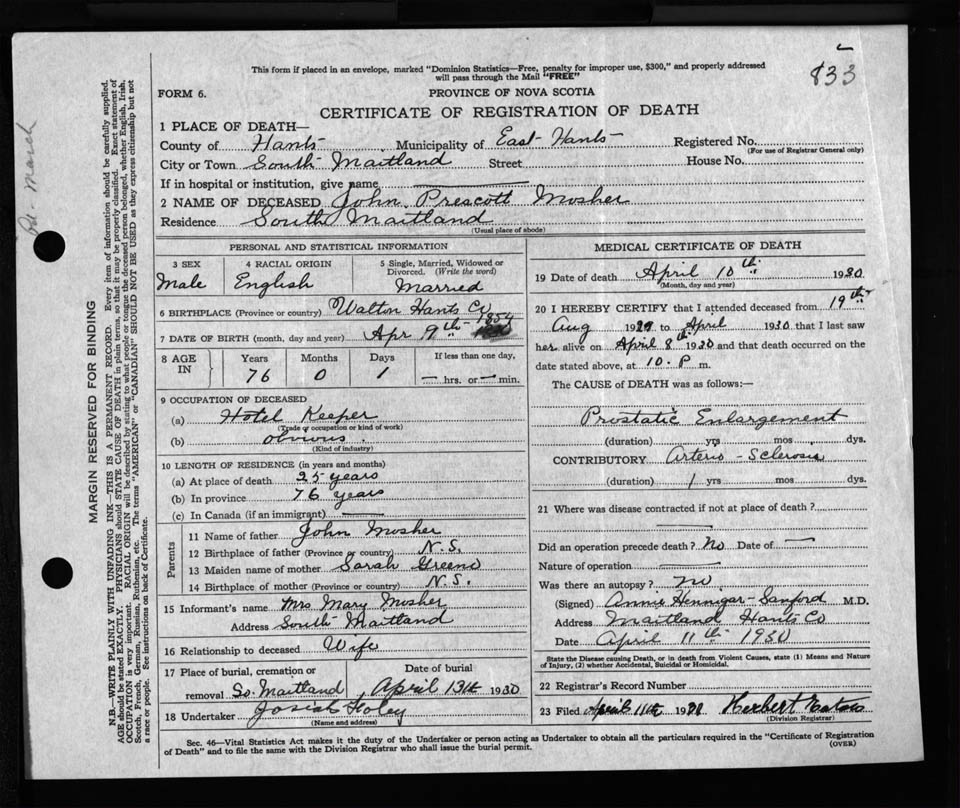 833
This form if placed in an envelope, marked "Dominion Statistics—Free, penalty for improper use, $300," and properly addressed
will pass through the Mail "FREE"
FORM 6.
PROVINCE OF NOVA SCOTIA
CERTIFICATE OF REGISTRATION OF DEATH
1 PLACE OF DEATH—
County of Hants Municipality of East Hants Registered No.
(For use of Registrar General only)
City or Town South Maitland Street House No.
If in hospital or institution, give name
2 NAME OF DECEASED John Prescott Mosher
Residence South Maitland
(Usual place of abode)
PERSONAL AND STATISTICAL INFORMATION
3 SEX
4 RACIAL ORIGIN
5 Single, Married, Widowed or
Divorced. (Write the word)
Male English Married
6 BIRTHPLACE (Province or country) Walton Hants Co
7 DATE OF BIRTH (month, day and year) Apr 9th 1854
8 AGE IN
Years Months Days If less than one day,
76 0 1 — hrs. or — min.
9 OCCUPATION OF DECEASED
(a) Hotel Keeper
(Trade or occupation or kind of work)
(b) obvious.
(Kind of industry)
10 LENGTH OF RESIDENCE (in years and months)
(a) At place of death 25 years
(b) In province 76 years
(c) In Canada (if an immigrant)
Parents
11 Name of father John Mosher
12 Birthplace of father (Province or country) N.S.
13 Maiden name of mother Sarah Greeno
14 Birthplace of mother (Province or country) N.S.
15 Informant's name Mrs Mary Mosher
Address South Maitland
16 Relationship to deceased Wife
17 Place of burial, cremation or Date of burial
removal So. Maitland, April 13th 1930
18 Undertaker Josiah Foley
(Name and address)
MEDICAL CERTIFICATE OF DEATH
19 Date of death April 10th 1930
(Month, day and year)
20 I HEREBY CERTIFY that I attended deceased from 19th
Aug 1929 to April 1930 that I last saw
her alive on April 8th 1930 and that death occurred on the
date stated above, at 10. P m.
The CAUSE OF DEATH was as follows:—
Prostatic Enlargement
(duration) yrs mos. dys.
CONTRIBUTORY Arterio-Sclerosis
(duration) 1 yrs mos dys.
21 Where was disease contracted if not at place of death?
Did an operation precede death? No Date of —
Nature of operation
Was there an autopsy? no
(Signed) Annie Hennigar-Sanford M.D.
Address Maitland Hants Co
Date April 11th 1930
State the Disease causing Death, or in death from Violent Causes, state (1) Means and Nature
of Injury, (2) whether Accidental, Suicidal or Homicidal.
22 Registrar's Record Number
23 Filed April 11th Herbert
(Division Registrar)
Sec. 46—Vital Statistics Act makes it the duty of the Undertaker or person acting as Undertaker to obtain all the particulars required in the "Certificate of Registration
of Death" and to file the same with the Division Registrar who shall issue the burial permit.
(OVER)
March
MARGIN RESERVED FOR BINDING
N.B.—WRITE PLAINLY WITH UNFADING INK—THIS IS A PERMANENT RECORD. Every item of information should be carefully supplied.
AGE should be stated EXACTLY. PHYSICIANS should STATE CAUSE OF DEATH in plain terms, so that it may be properly classified. Exact statement of
OCCUPATION is very important. RACIAL ORIGIN will be described by stating to what people or tongue the deceased person belonged, whether English, Irish,
Scotch, French, German, Russian, Ruthenian, etc. The terms "AMERICAN" or "CANADIAN" SHOULD NOT BE USED as they express citizenship but not
a race or people. See instructions on back of Certificate.